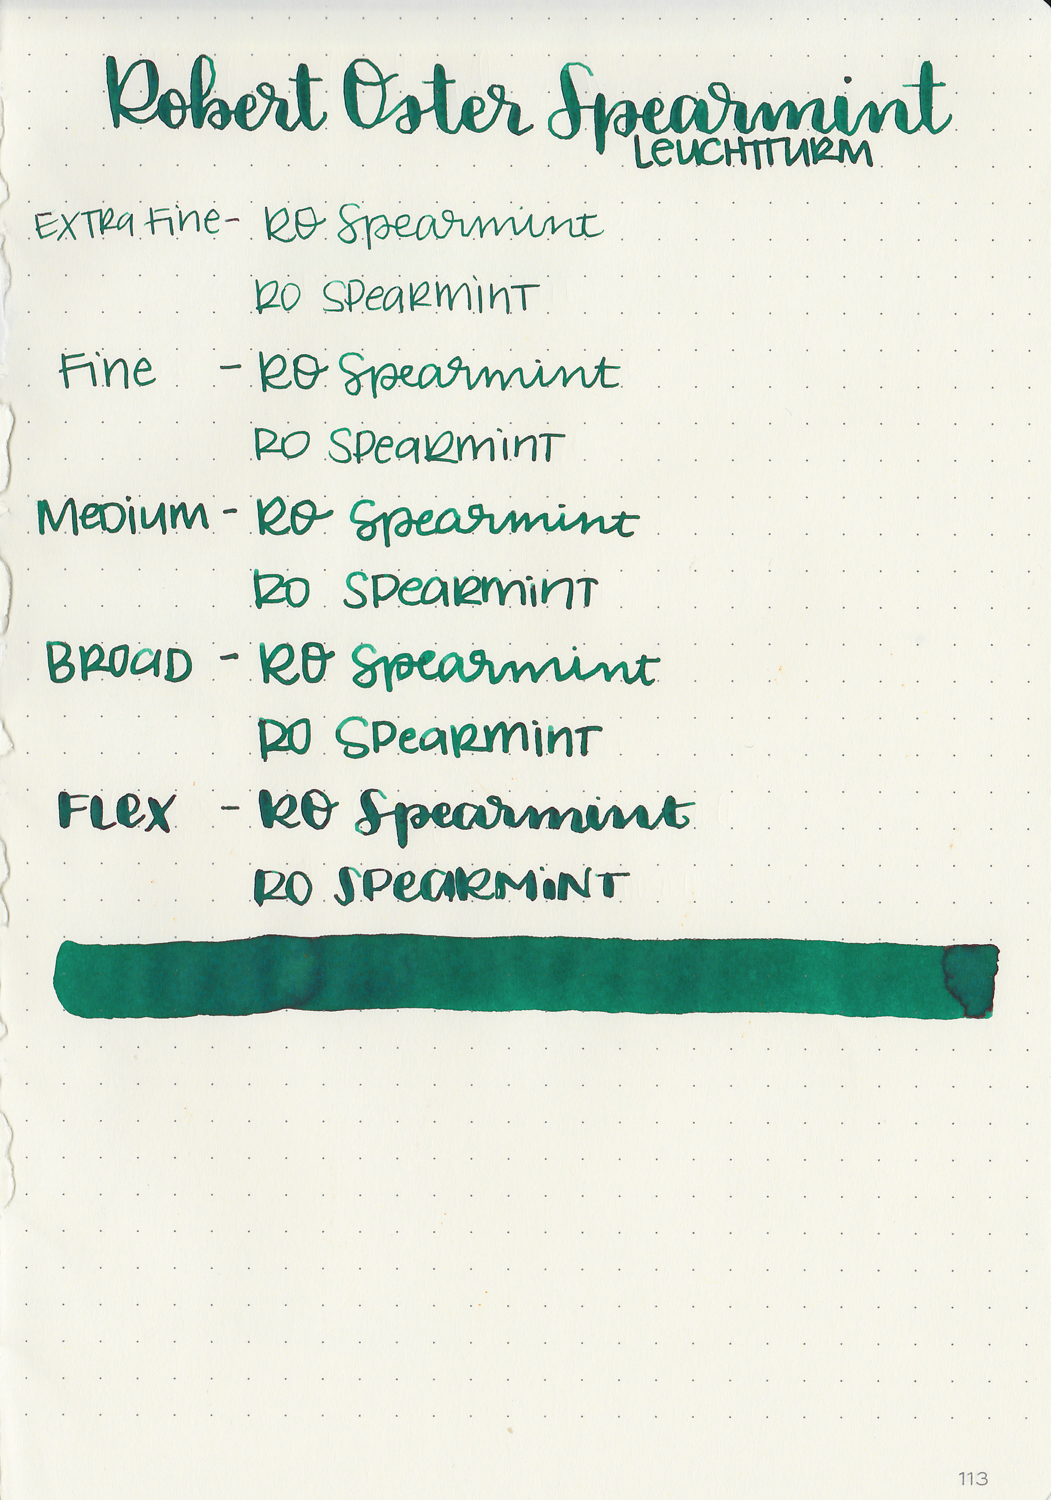 Robert Oster Spearmint
LEUCHTTURM
EXTRA Fine - RO Spearmint
RO SPeaRMinT
Fine - RO Spearmint
RO SPeaRMinT
MeDiuM - RO Spearmint
RO SPeaRMinT
BROaD - RO Spearmint
RO SPeaRMinT
FLeX - RO Spearmint
RO SPeaRMiNT
113